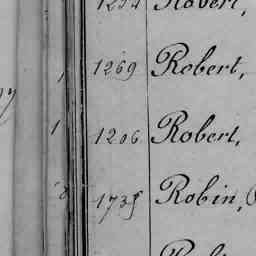 1254 Robert,
1269 Robert,
1206 Robert,
1735 Robin,